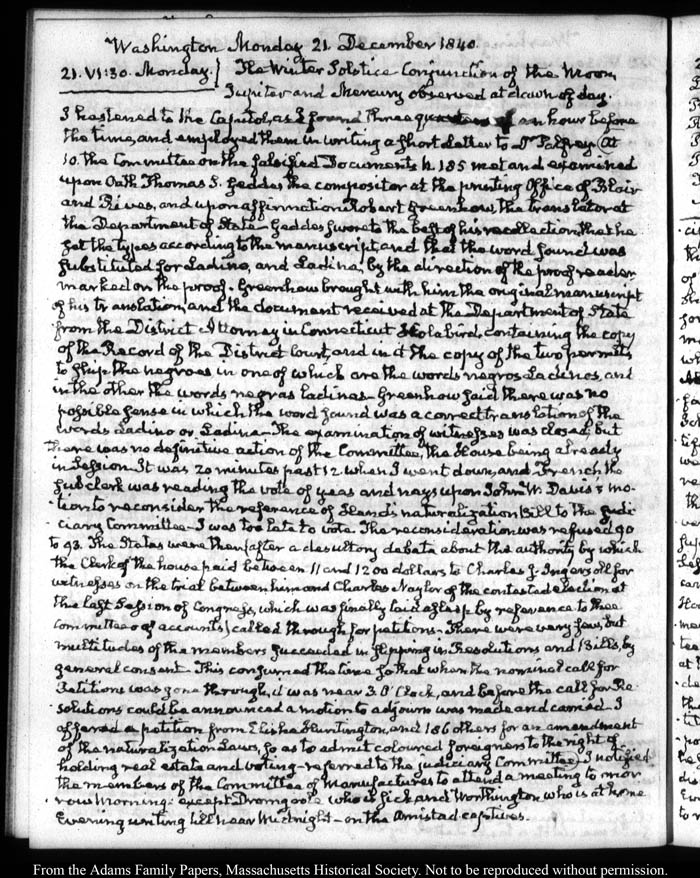 Washington Monday 21. December 1840.
21. VI:30. Monday. The Winter Solstice Conjunction of the Moon,
Jupiter and Mercury observed at dawn of day.
I hastened to the Capitol, as I found three quarters of an hour before
the time, and employed them in writing a short letter to Dr Palfrey. At
10. the Committee on the falsified Documents H 185 met and examined
upon Oath Thomas S. Geddes the compositor at the printing Office of Blair
and Rives, and upon affirmation Robert Greenhow, the translator at
the Department of State—Geddes swore to the best of his recollection, that he
set the types according to the manuscript, and that the word sound was
substituted for Ladino, and Ladina, by the direction of the proof reader
marked on the proof. Greenhow brought with him the original manuscript
of his translation, and the document received at the Department of State
from the District Attorney in Connecticut Holabird, containing the copy
of the Record of the District Court, and in it the copy of the two permits
to ship the negroes in one of which are the words negros Ladinos, and
in the other the words negras ladinas—Greenhow said there was no
possible sense in which the word sound was a correct translation of the
words Ladino or Ladina—The examination of witnesses was closed, but
there was no definitive action of the Committee, the House being already
in Session—It was 20 minutes past 12 when I went down, and French, the
subclerk was reading the vote of yeas and nays upon John W. Davis's mo-
tion to reconsider the reference of naturalization Bill to the Judi-
ciary Committee—I was too late to vote. The reconsideration was refused 90
to 93. The States were then (after a desultory debate about the authority by which
the Clerk of the house paid between 11 and 1200 dollars to Charles J. Ingersoll for
witnesses on the trial between him and Charles Naylor of the contested election at
the last Session of Congress, which was finally laid asleep by reference to the
committee of accounts) called through for petitions—There were very few, but
multitudes of the members succeeded in slipping in Resolutions and Bills, by
general consent—This consumed the time so that when the nominal call for
Petitions was gone through, it was near 3 O'Clock, and before the call for Re-
solutions could be announced a motion to adjourn was made and carried. I
offered a petition from Elisha Huntington, and 186 others for an amendment
of the naturalization Laws, so as to admit coloured foreigners to the right of
holding real estate and voting—referred to the judiciary Committee—I notified
the members of the Committee of Manufactures to attend a meeting to mor
row morning: except Dromgoole who is sick and Worthington who is at home
Evening writing till near Midnight—on the Amistad captives.
From the Adams Family Papers, Massachusetts Historical Society. Not to be reproduced without permission.